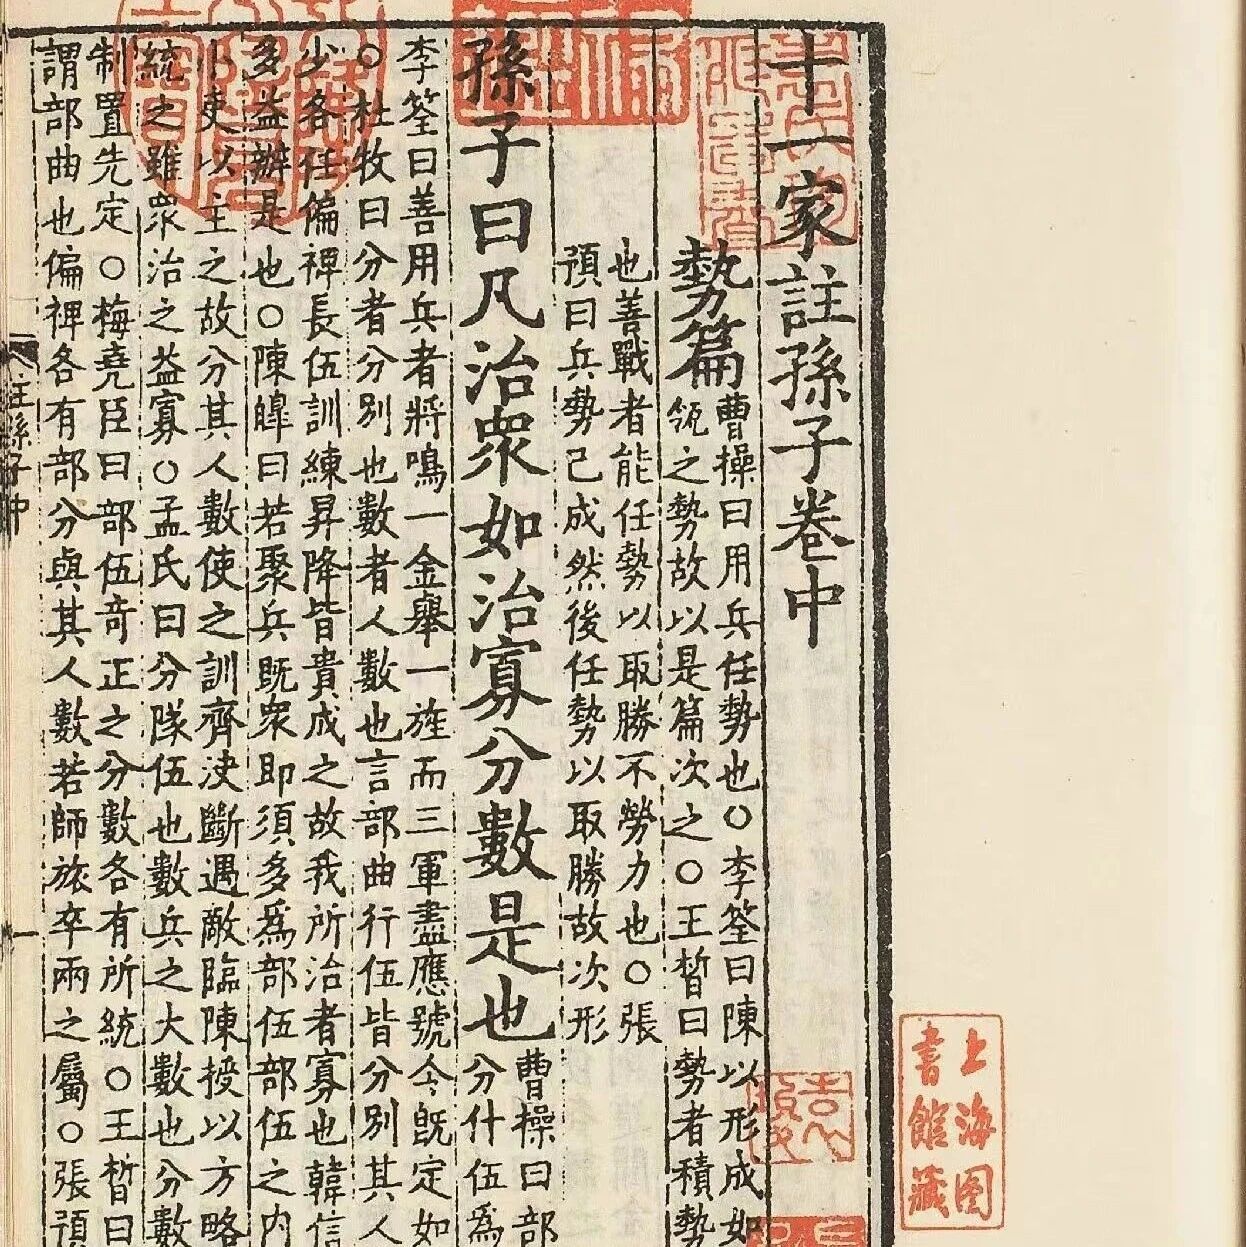 十一家註孫子卷中
勢篇
曹操曰用兵任勢也○李筌曰陳以形成如
瓴之勢故以是篇次之○王晳曰勢者積勢
也善戰者能任勢以取勝不勞力也○張
預曰兵勢已成然後任勢以取勝故次形
孫子曰凡治眾如治寡分數是也
曹操曰部
分什伍爲
李筌曰善用兵者將鳴一金舉一旌而三軍盡應號令旣定如
○杜牧曰分者分別也數者人數也言部曲行伍皆分別其人
少各任偏裨長伍訓練昇降皆責成之故我所治者寡也韓信
多益辦是也○陳皥曰若聚兵既衆即須多爲部伍部伍之內
小吏以主之故分其人數使之訓齊決斷遇敵臨陳授以方略
統之雖眾治之益寡○孟氏曰分隊伍也數兵之大數也分數
制置先定○梅堯臣曰部伍奇正之分數各有所統○王晳曰
謂部曲也偏裨各有部分與其人數若師旅卒兩之屬○張預
注孫子中
一
上海图
書館藏